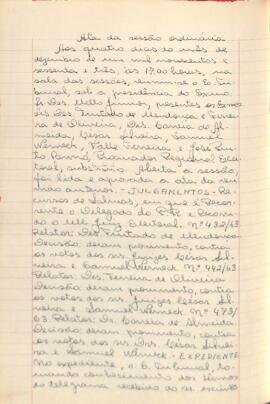 Ata da sessão ordinária
Aos quatro dias do mês de
dezembro de um mil novecentos e
sessenta e três, às 17,00 horas, na
sala das sessões, reuniu-se o E. Tri-
bunal, sob a presidência do Exmo
Sr. Des. Mello Júnior, presentes os Exmos
Des. Furtado de Mendonça e Ferrei-
ra de Oliveira, Drs. Correia de Al-
meida, César Silveira, Samuel
Werneck, Valle Ferreira e José Pin-
to Renó, Procurador Regional Elei-
toral, substituto. Aberta a sessão
foi lida e aprovada a ata da reu-
nião anterior. - JULGAMENTOS - Re-
cursos de Salinas, em que é Recor-
rente o Delegado do P.R. e Recorri-
do o MM. Juiz Eleitoral. Nº 432/63
Relator: Des. Furtado de Mendonça
Decisão: deram provimento, contra
os votos dos srs. juízes César Sil-
veira e Samuel Werneck. Nº 442/63
Relator: Des. Ferreira de Oliveira
Decisão: deram provimento, contra
os votos dos srs. juízes César Sil-
veira e Samuel Werneck. Nº 473/
63. Relator: Dr. Correia de Almeida
Decisão: deram provimento, contra
os votos dos srs. Drs. César Silvei-
ra e Samuel Werneck. - EXPEDIENTE
No expediente, o E. Tribunal, to-
mando conhecimento dos termos
do telegrama recebido do sr. escrivão